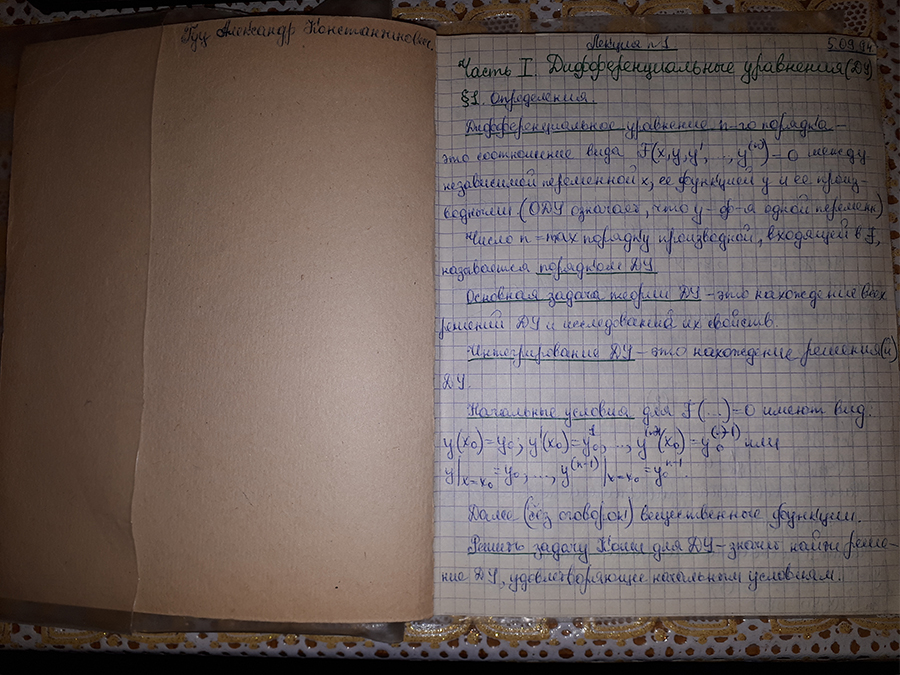 Гуц Александр Константинович
Лекция №1
5.09.94
Часть I. Дифференциальные уравнения (ДУ)
§1. Определения.
Дифференциальное уравнение n-го порядка –
это соотношение вида F(x, y, y', ..., y⁽ⁿ⁾) = 0 между
независимой переменной x, ее функцией y и ее произ-
водными (ОДУ означает, что y – ф-я одной перемен.)
Число n = max порядку производной, входящей в F,
называется порядком ДУ
Основная задача теории ДУ – это нахождение всех
решений ДУ и исследования их свойств.
Интегрирование ДУ – это нахождение решения(й)
ДУ.
Начальные условия для F(...) = 0 имеют вид:
y(x₀) = y₀; y'(x₀) = y₀¹, ..., y⁽ⁿ⁻¹⁾(x₀) = y₀⁽ⁿ⁻¹⁾ или
y|x=x₀ = y₀, ..., y⁽ⁿ⁻¹⁾|x=x₀ = y₀ⁿ⁻¹.
Далее (без оговорок!) вещественные функции.
Решить задачу Коши для ДУ – значит найти реше-
ние ДУ, удовлетворяющее начальным условиям.